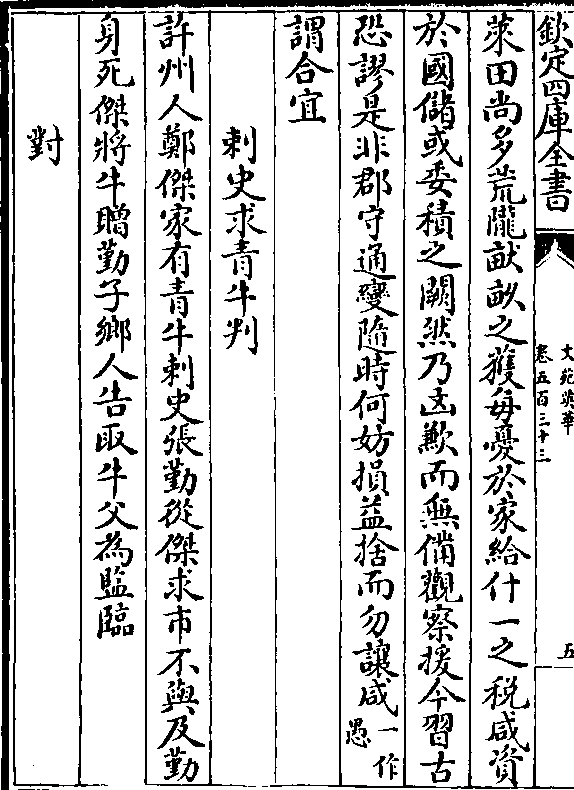 欽定四庫全書
文苑英華
卷五百三十三
五
萊田尚多荒隴畝畝之獲每憂於家給什一之税咸資
於國儲或委積之闕然乃凶歉而無備觀察援今習古
恐謬是非郡守通變隨時何妨損益捨而勿讓咸一作愚
謂合宜
刺史求青牛判
許州人鄭傑家有青牛刺史張勤從傑求市不與及勤
身死傑將牛贈勤子鄉人告取牛父為監臨
對